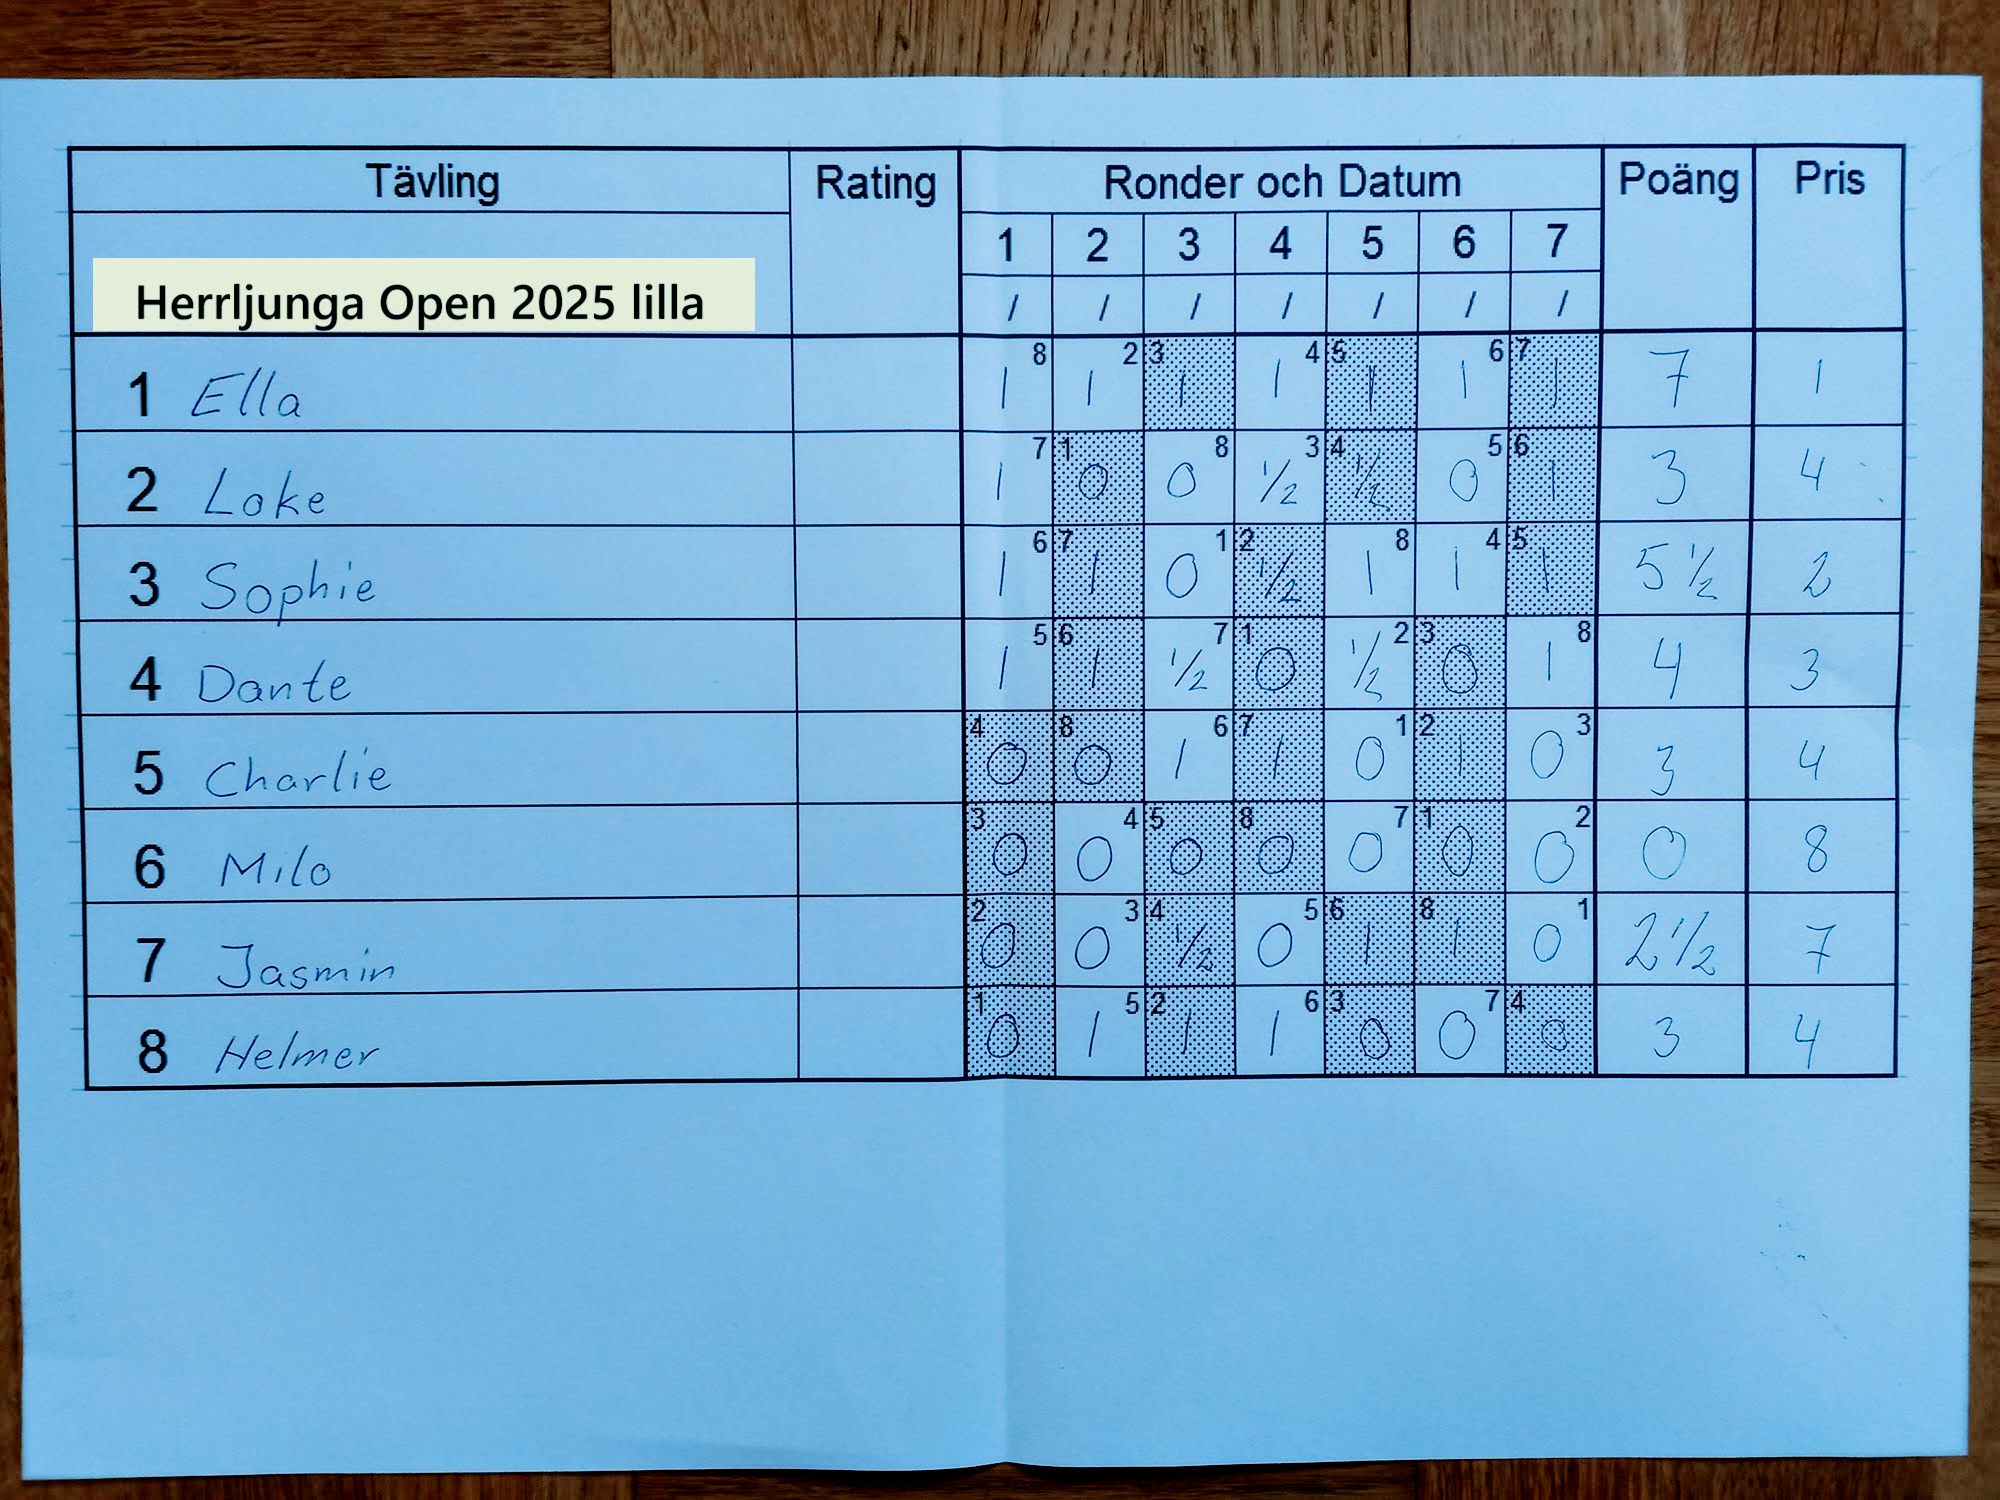 Tävling Rating Ronder och Datum Poäng Pris
1 2 3 4 5 6 7
Herrljunga Open 2025 lilla / / / / / / /
1 Ella 8 1 2 1 3 1 4 1 5 1 6 1 7 1 7 1
2 Loke 7 1 1 0 8 0 3 ½ 4 ½ 5 0 6 1 3 4
3 Sophie 6 1 7 1 1 0 2 ½ 8 1 4 1 5 1 5 ½ 2
4 Dante 5 1 6 1 7 ½ 1 0 2 ½ 3 0 8 1 4 3
5 Charlie 4 0 8 0 6 1 7 1 1 0 2 1 3 0 3 4
6 Milo 3 0 4 0 5 0 8 0 7 0 1 0 2 0 0 8
7 Jasmin 2 0 3 0 4 ½ 5 0 6 1 8 1 1 0 2 ½ 7
8 Helmer 1 0 5 1 2 1 6 1 3 0 7 0 4 0 3 4